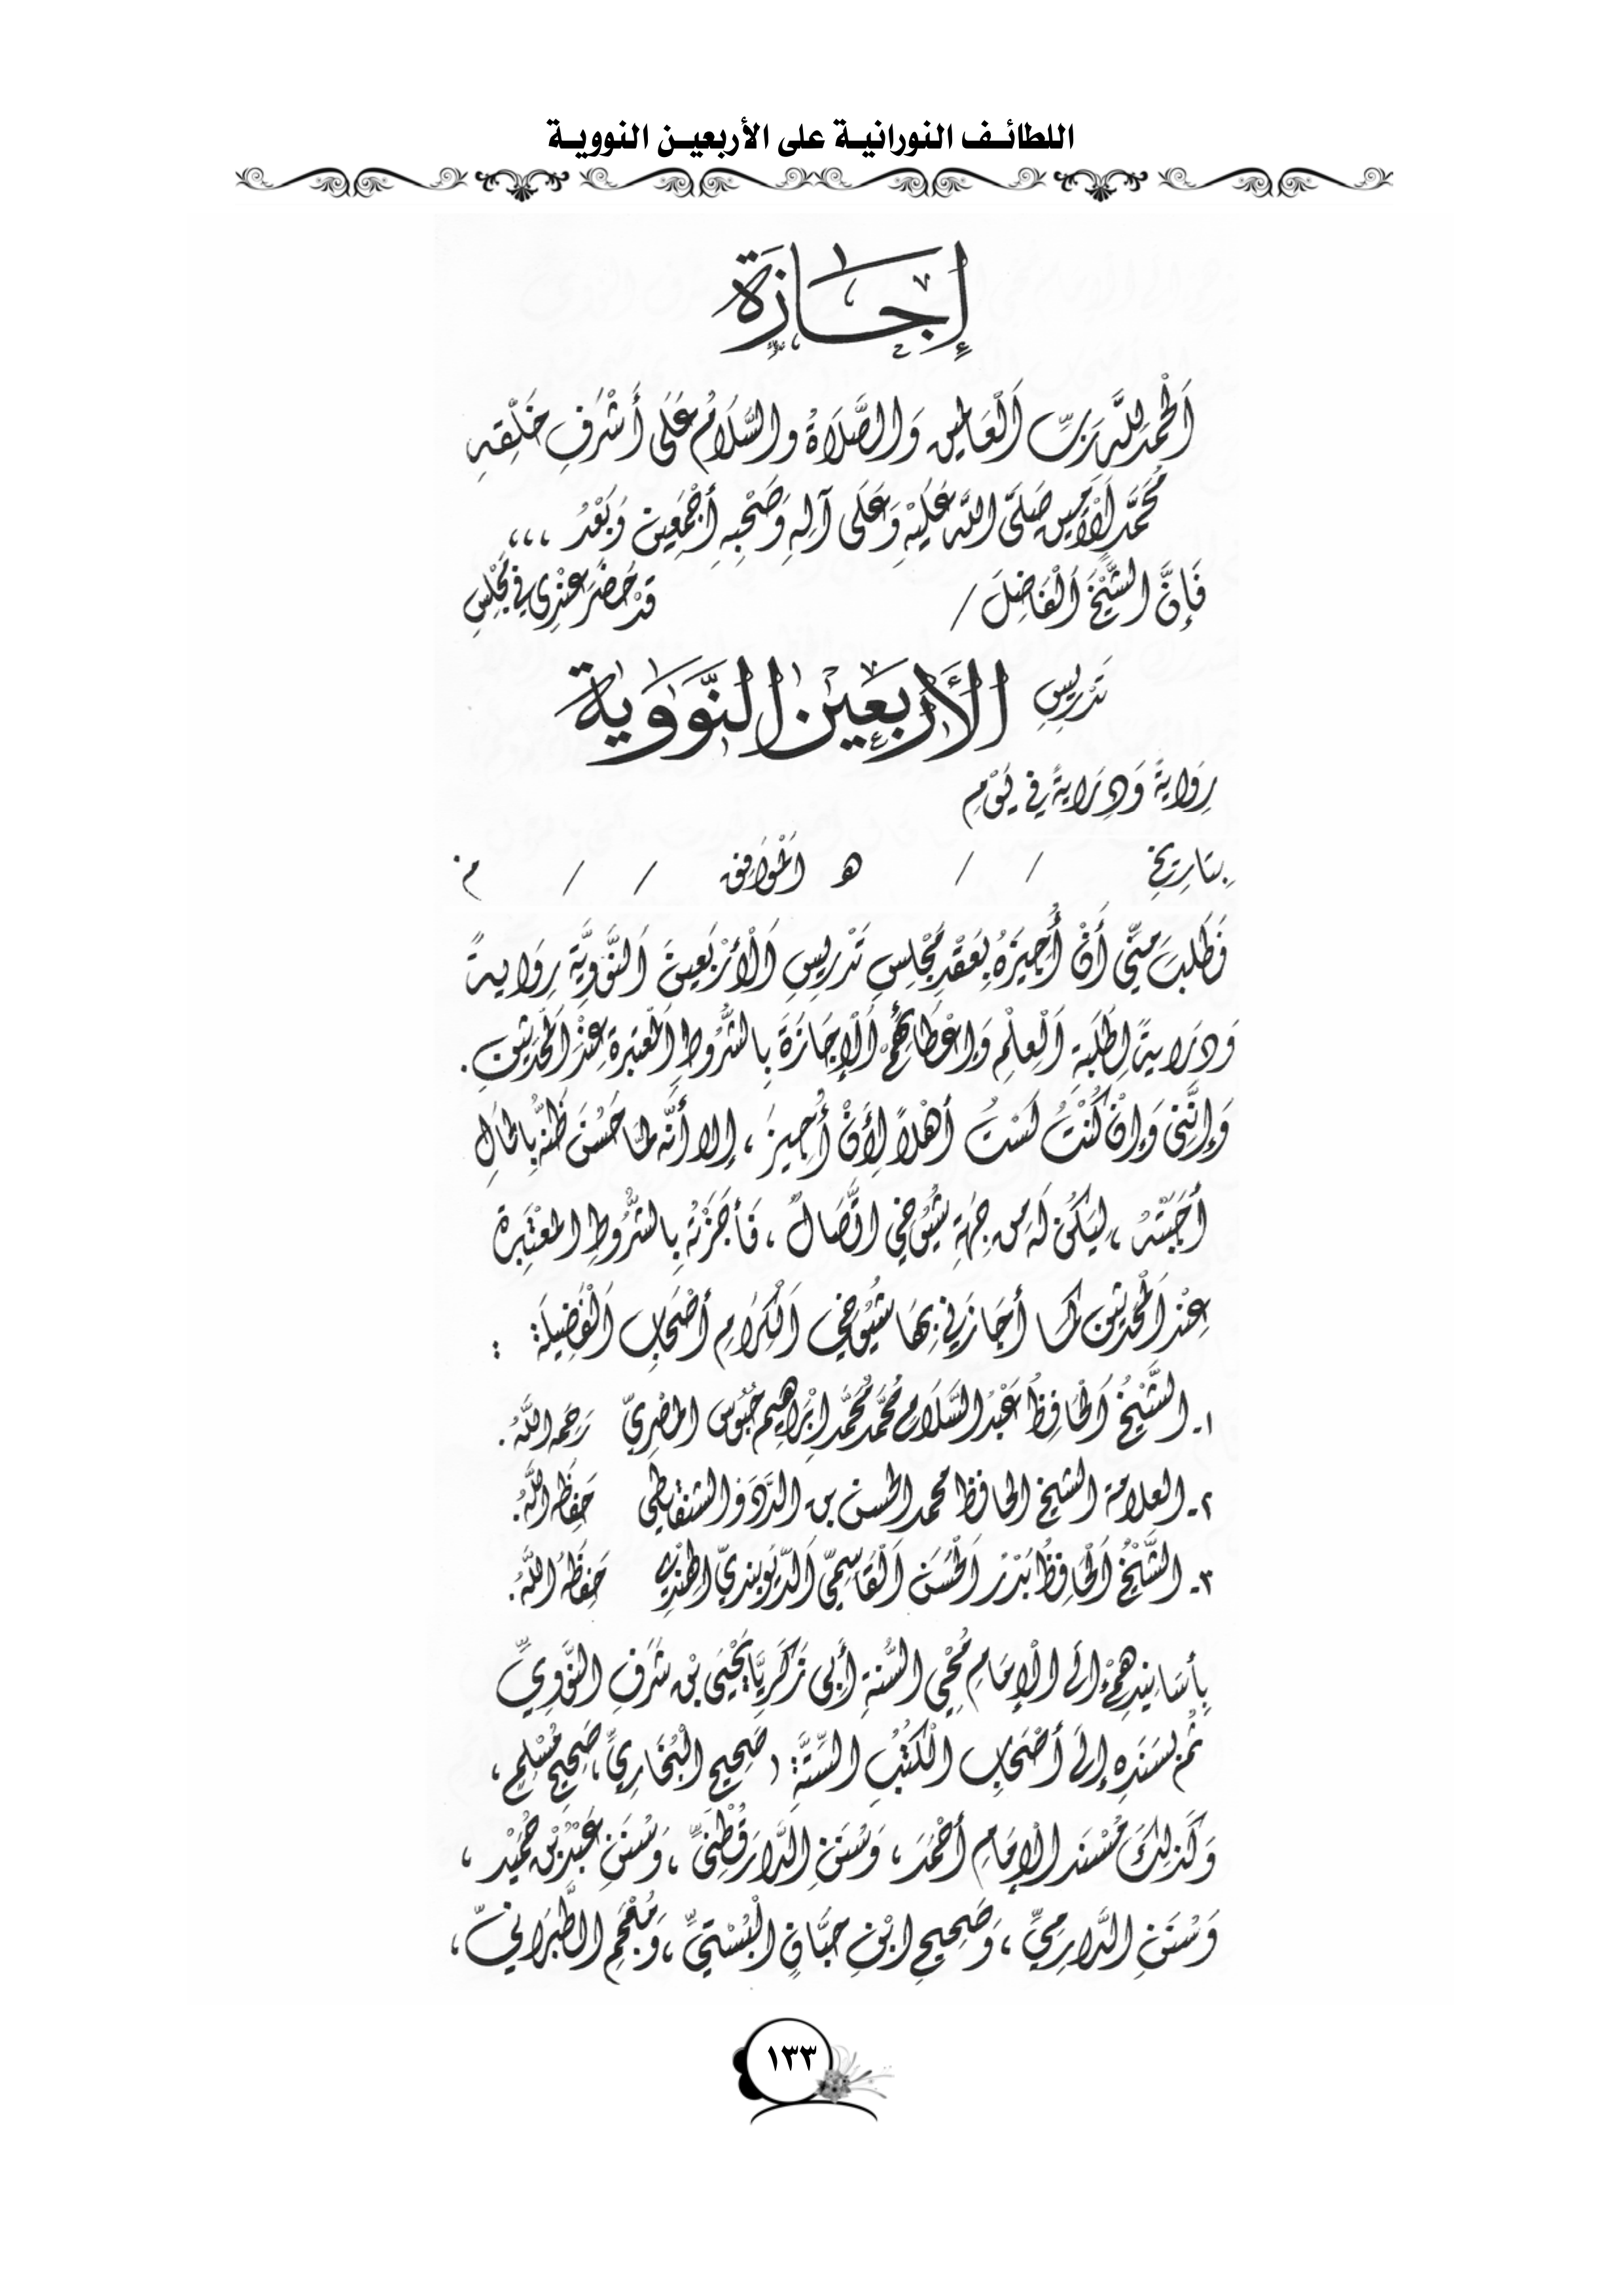 اللطائف النورانية على الأربعين النووية
إجازة
اَلْحمد لله رَبِّ اَلْعَالمين وَالصَّلَاةُ والسَّلَامُ عَلَى أَشْرَفِ خَلْقِهِ
مُحَمَّد اَلْأَمين صَلَّى اللَّه عَلَيْهِ وَعَلَى آلِهِ وَصَحْبِهِ أَجْمَعِين وَبَعْدُ ،،،
فَإِنَّ الشَّيْخَ اَلْفَاضِلَ / قَدْ حَضَرَ عِنْدِي فِي مَجْلِسِ
تَدْرِيسِ الأَرْبَعِينَ النَّوَوِيَة
رِوَايَةً وَدِرَايَةً فِي يَوْمِ
بِتَارِيخِ / / هـ اَلْمُوَافِق / / م.
فَطَلَبَ مِنِّي أَنْ أُجِيزَهُ بِعَقْدِ مَجْلِسِ تَدْرِيسِ اَلْأَرْبَعِينَ اَلنَّوَوِيَّة رِوَايةً
وَدِرَايةً لِطَلَبَةِ اَلْعِلْمِ وَإِعْطَائِهُمْ اَلْإِجَازَةَ بِالشُّرُوطِ اَلْمعْتَبَرة عِنْدَ اَلْمحَدِّثِينِ.
وَإِنَّنِي وَإِنْ كُنْتُ لَسْتُ أَهْلاً لِأَنْ أُجِيزَ ، إِلا أَنَّه لمَا حَسُنَ ظَنُّه بِالحَالِ
أَجَبْتهُ ، لِيَكُن لَه مِن جِهَةِ شُيُوخِي اتَّصَالٌ ، فَأَجَزْتُه بِالشُّرُوطِ المعْتَبِرة
عِنْدَ اَلْمُحَدِّثين كمَا أَجَازَنِي بِهَا شُيُوخِي اَلْكِرَامِ أَصْحَابِ اَلْفَضِيلَة :
١ـ الشَّيْخُ اَلْحَافِظُ عَبْدُ السَّلَامِ مُحَمَّد مُحَمَّد إِبْرَاهِيم حُبُوس المصْرِيّ رَحِمَه اللَّهُ .
٢ـ العلامة الشيخ الحافظ محمد الحسن بن الدَّدَو الشنقيطي حَفِظَه اللَّهُ.
٣ـ الشَّيْخُ اَلْحَافِظُ بَدْرُ اَلْحَسَن اَلْقَاسِمِيّ اَلدِّيُوبِنديّ الهنْدِي حَفِظَهُ اللَّهُ.
بِأَسَانِيدِهِمْ إِلَى الْإِمَامِ مُحْيِي السُّنةِ أَبِي زَكَرِيَّا يَحْيَى بْن شَرَفِ النَّوَوِيِّ
ثُم بِسَنَدِهِ إِلَى أَصْحَابِ الْكُتُبِ السِّتَّةِ: صَحِيحِ الْبُخَارِيِّ، صَحِيحِ مُسْلِمٍ ،
وَكَذَلِكَ مُسْنَد الْإِمَامِ أَحْمَدَ ، وَسُنَنِ الدَّارَقُطْنِيِّ ، وَسُنَنِ عَبْدِ بْن حُمَيْد ،
وَسُنَنِ الدَّارِمِيِّ ، وَصَحِيحِ ابْنِ حِبَّانٍ الْبُسْتِيِّ ، وَمُعْجَمِ الطَّبَرَانيِّ ،
١٣٣